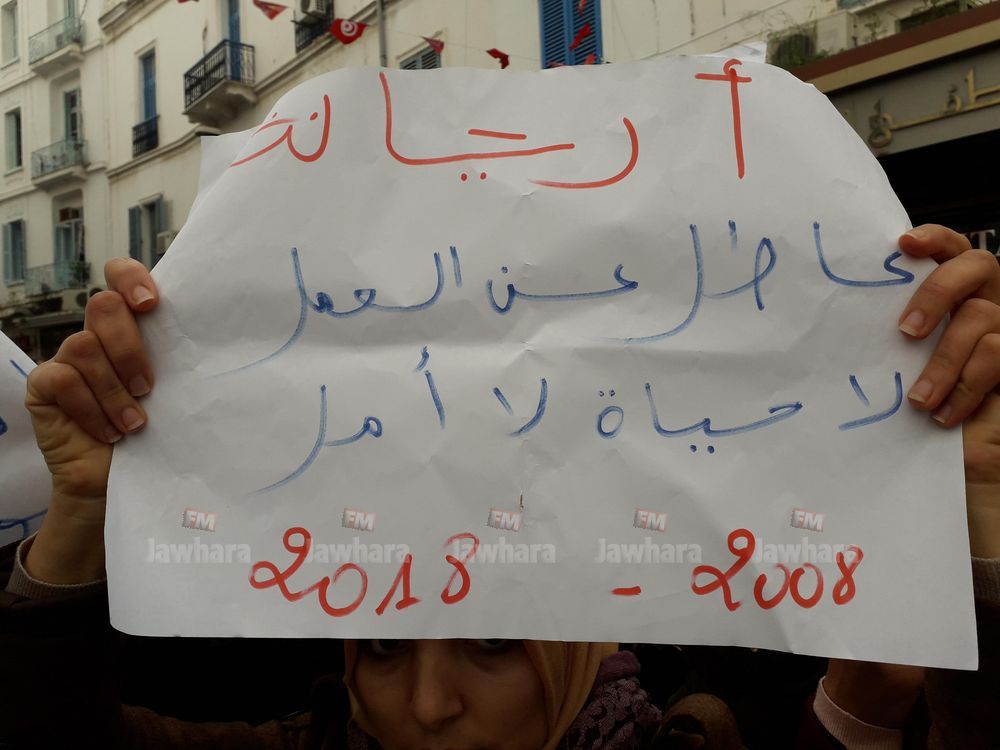 أريانة
عاطل عن العمل
لا حياة لا أمل
FM FM FM FM FM
Jawhara Jawhara Jawhara Jawhara Jawhara
2008 - 2018